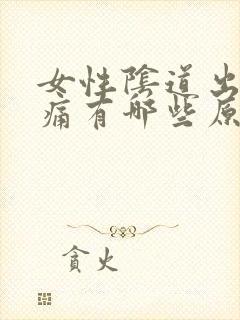 女性阴道出
痛有哪些原
貪火